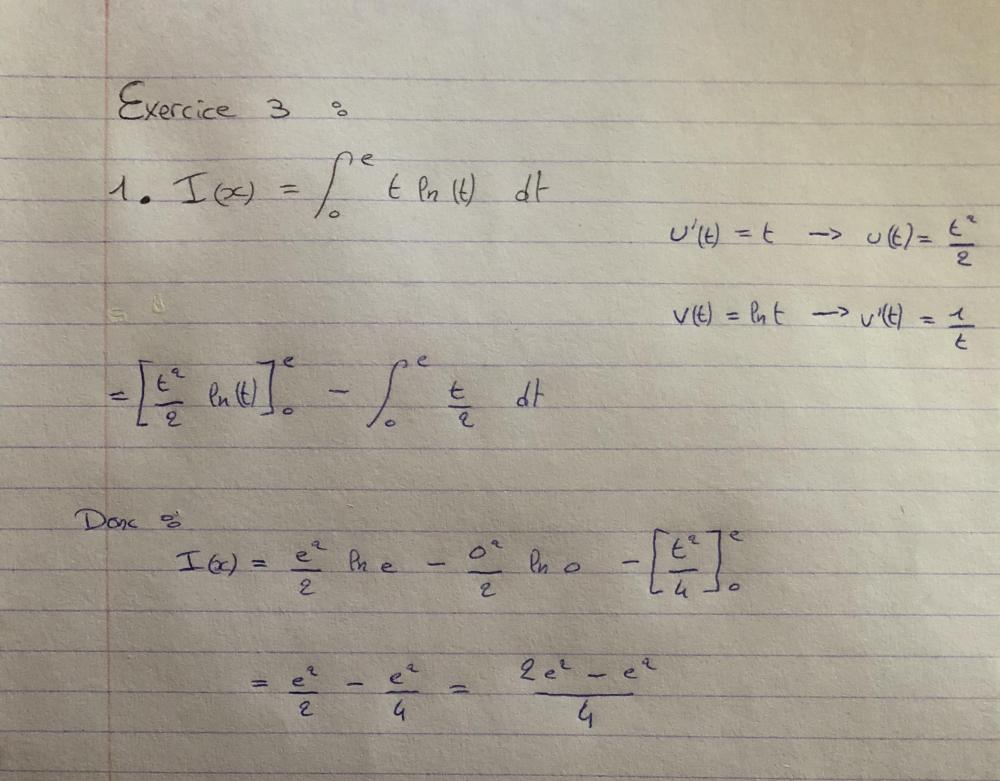 Exercice 3 :
1. I(x) = ∫₀ᵉ t ln(t) dt
u'(t) = t → u(t) = t²/2
v(t) = ln t → v'(t) = 1/t
= [t²/2 ln(t)]₀ᵉ - ∫₀ᵉ t/2 dt
Donc :
I(x) = e²/2 ln e - 0²/2 ln 0 - [t²/4]₀ᵉ
= e²/2 - e²/4 = (2e² - e²)/4